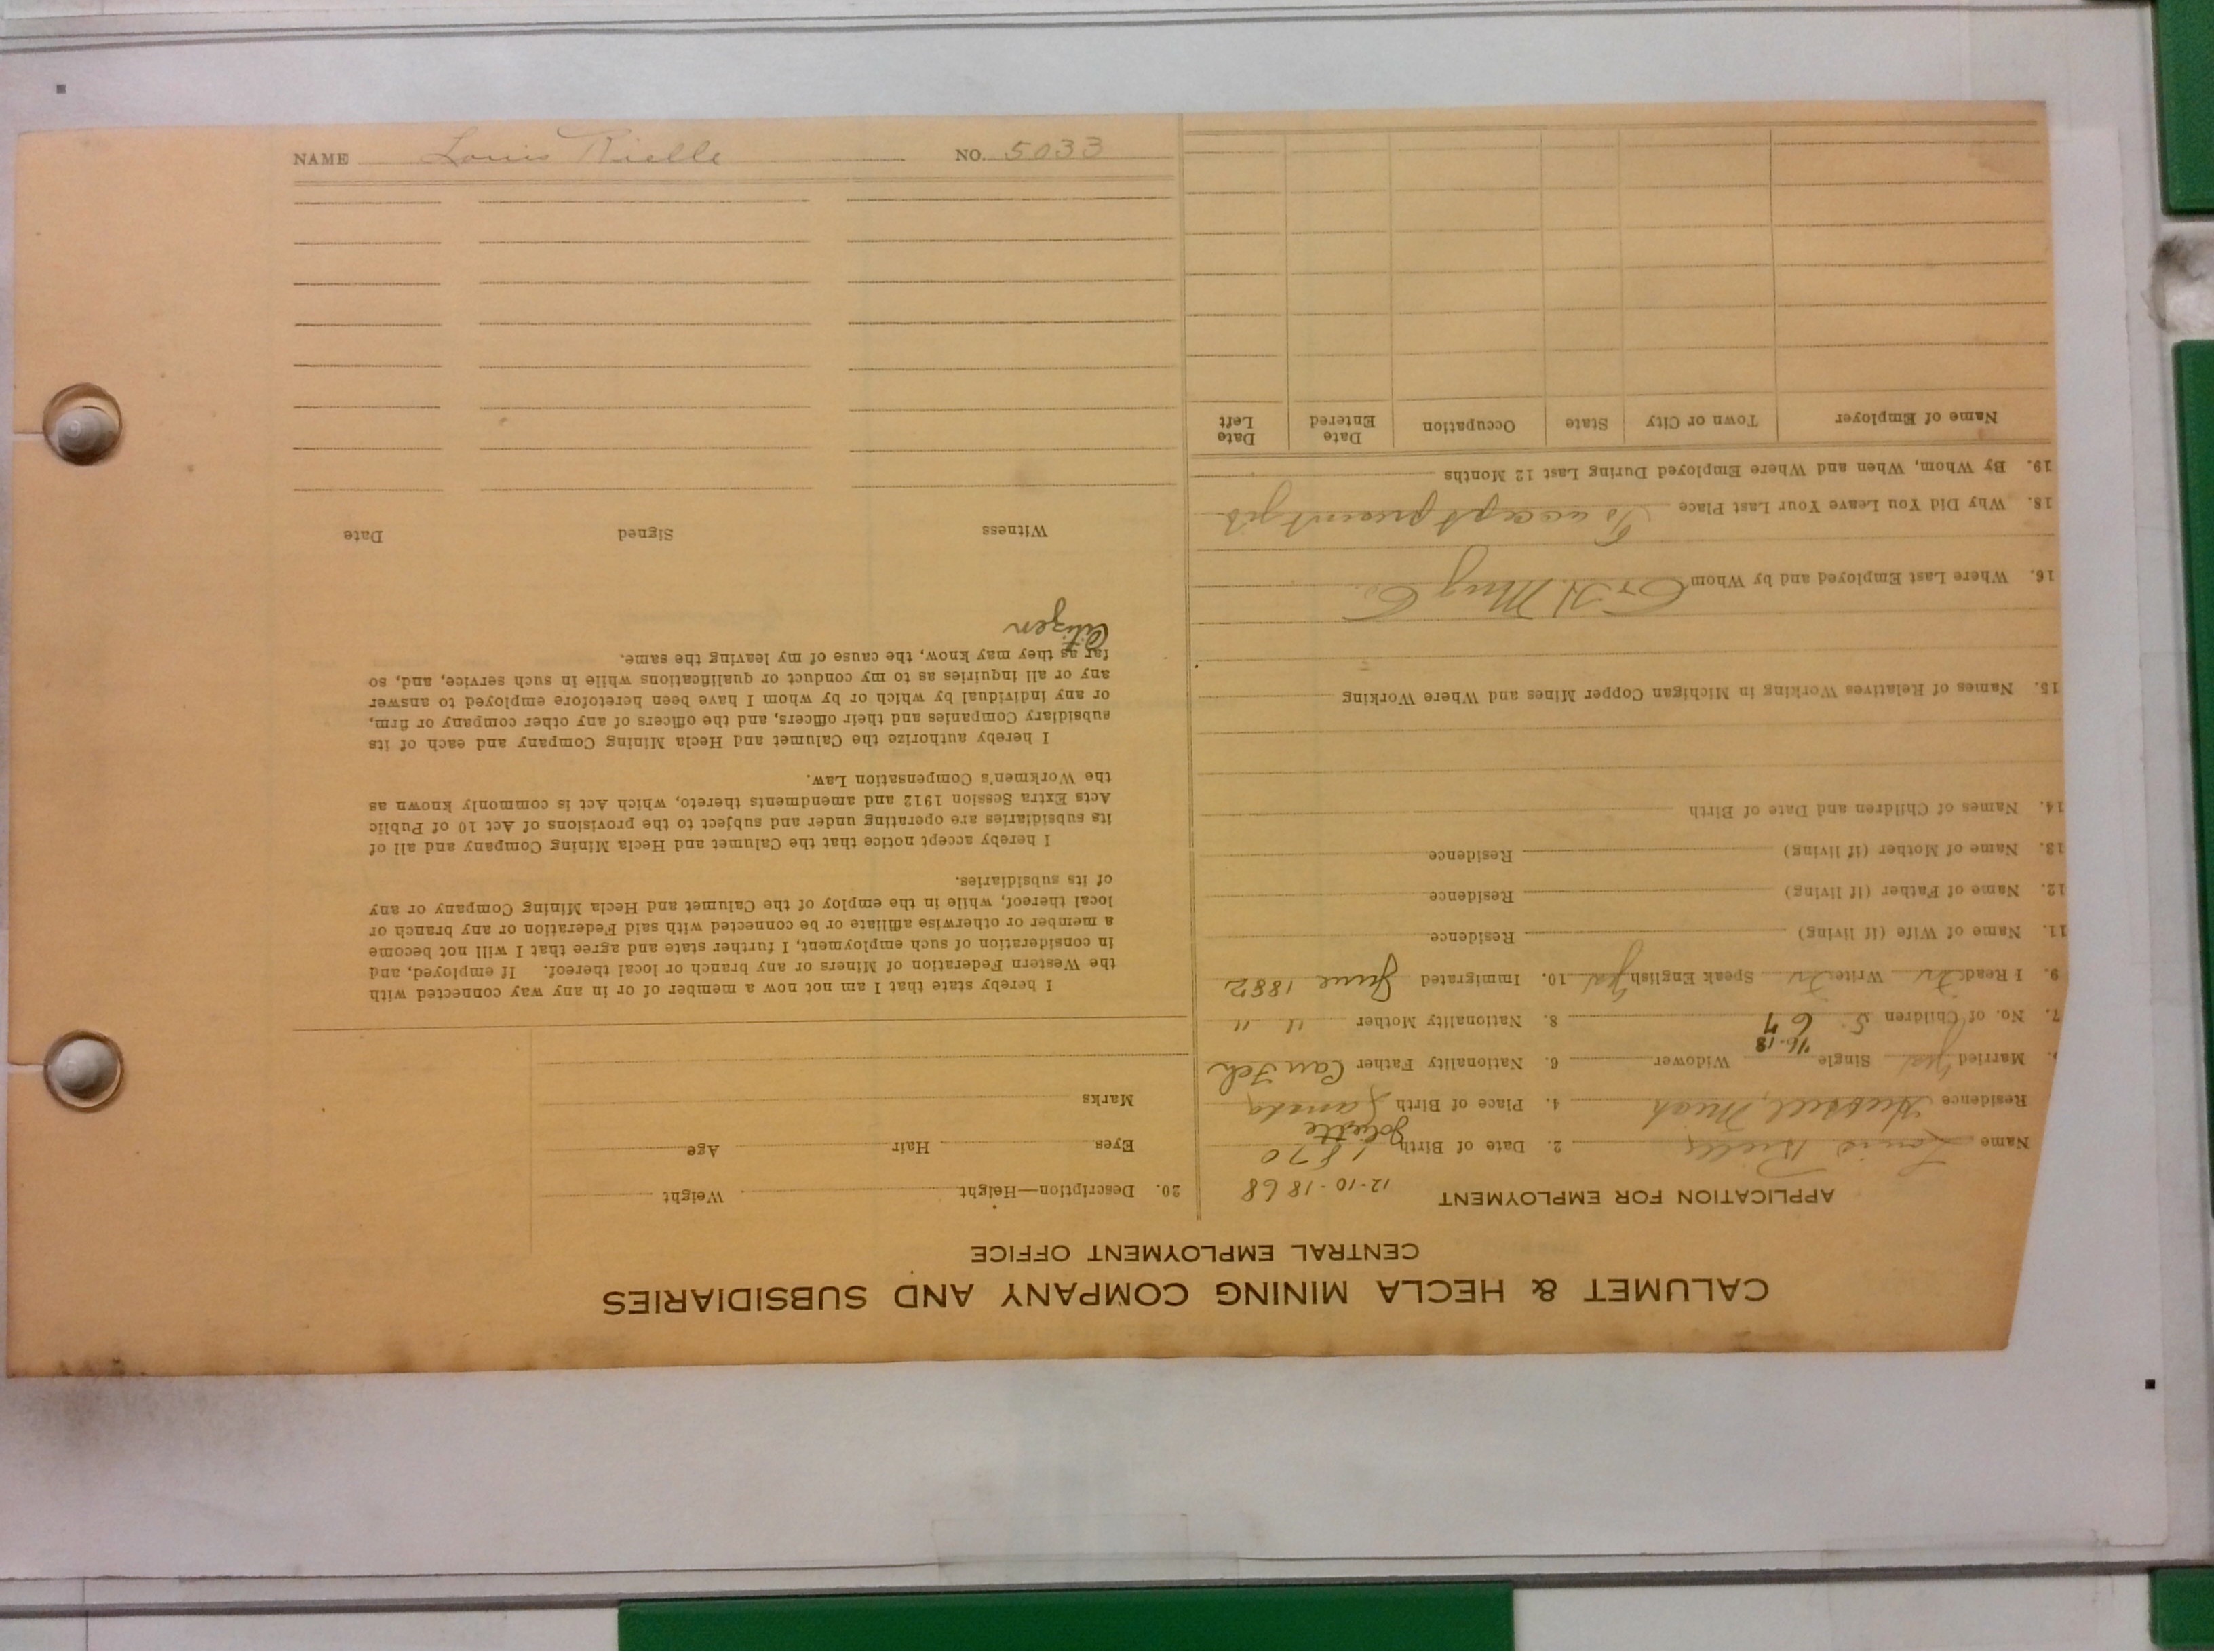 CALUMET & HECLA MINING COMPANY AND SUBSIDIARIES
CENTRAL EMPLOYMENT OFFICE
APPLICATION FOR EMPLOYMENT
12-10-1868
Name Louis Rielle 2. Date of Birth 1870
Joliette
Residence Hubbell, Mich 4. Place of Birth Canada
Married Yes Single Widower 6. Nationality Father Can Fch
7. No. of Children 5 6 7 8. Nationality Mother " "
9. I Read: Fr Write: Fr Speak English Yes 10. Immigrated June 1882
11. Name of Wife (if living) Residence
12. Name of Father (if living) Residence
13. Name of Mother (if living) Residence
14. Names of Children and Date of Birth
15. Names of Relatives Working in Michigan Copper Mines and Where Working
16. Where Last Employed and by Whom C & H Mng Co.
18. Why Did You Leave Your Last Place To accept present job
19. By Whom, When and Where Employed During Last 12 Months
Name of Employer Town or City State Occupation Date Entered Date Left
20. Description—Height Weight
Eyes Hair Age
Marks
I hereby state that I am not now a member of or in any way connected with
the Western Federation of Miners or any branch or local thereof. If employed, and
in consideration of such employment, I further state and agree that I will not become
a member or otherwise affiliate or be connected with said Federation or any branch or
local thereof, while in the employ of the Calumet and Hecla Mining Company or any
of its subsidiaries.
I hereby accept notice that the Calumet and Hecla Mining Company and all of
its subsidiaries are operating under and subject to the provisions of Act 10 of Public
Acts Extra Session 1912 and amendments thereto, which Act is commonly known as
the Workmen's Compensation Law.
I hereby authorize the Calumet and Hecla Mining Company and each of its
subsidiary Companies and their officers, and the officers of any other company or firm,
or any individual by which or by whom I have been heretofore employed to answer
any or all inquiries as to my conduct or qualifications while in such service, and, so
far as they may know, the cause of my leaving the same.
Citizen
Witness Signed Date
NAME Louis Rielle NO. 5033